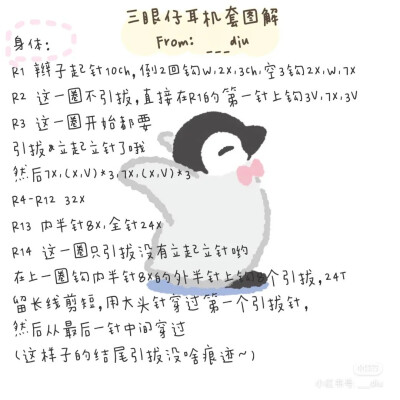 三眼仔耳机套图解
From: ___diu
身体:
R1 辫子起针10ch,倒2回钩W,2X,3ch,空3钩2X,W,7X
R2 这一圈不引拔,直接在R1的第一针上钩3V,7X,3V
R3 这一圈开始都要
引拔&立起立针了哦
然后7X,(X,V)*3,7X,(X,V)*3
R4-R12 32X
R13 内半针8X,全针24X
R14 这一圈只引拔没有立起立针哟
在上一圈钩内半针8X的外半针上钩8个引拔,24T
留长线剪短,用大头针穿过第一个引拔针,
然后从最后一针中间穿过
(这样子的结尾引拔没啥痕迹~)
小红书号 ___diu